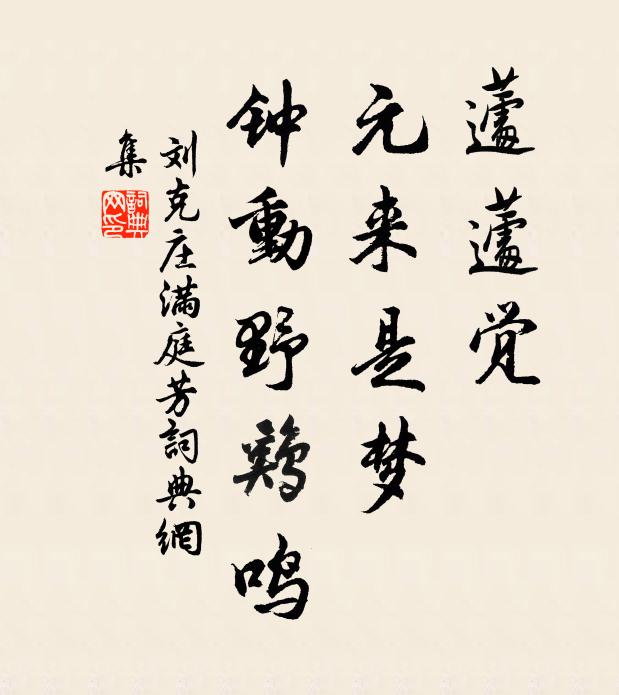 蘧蘧觉
元来是梦
钟動野鷄鸣
刘克庄满庭芳詞典網
集
詞典
网印